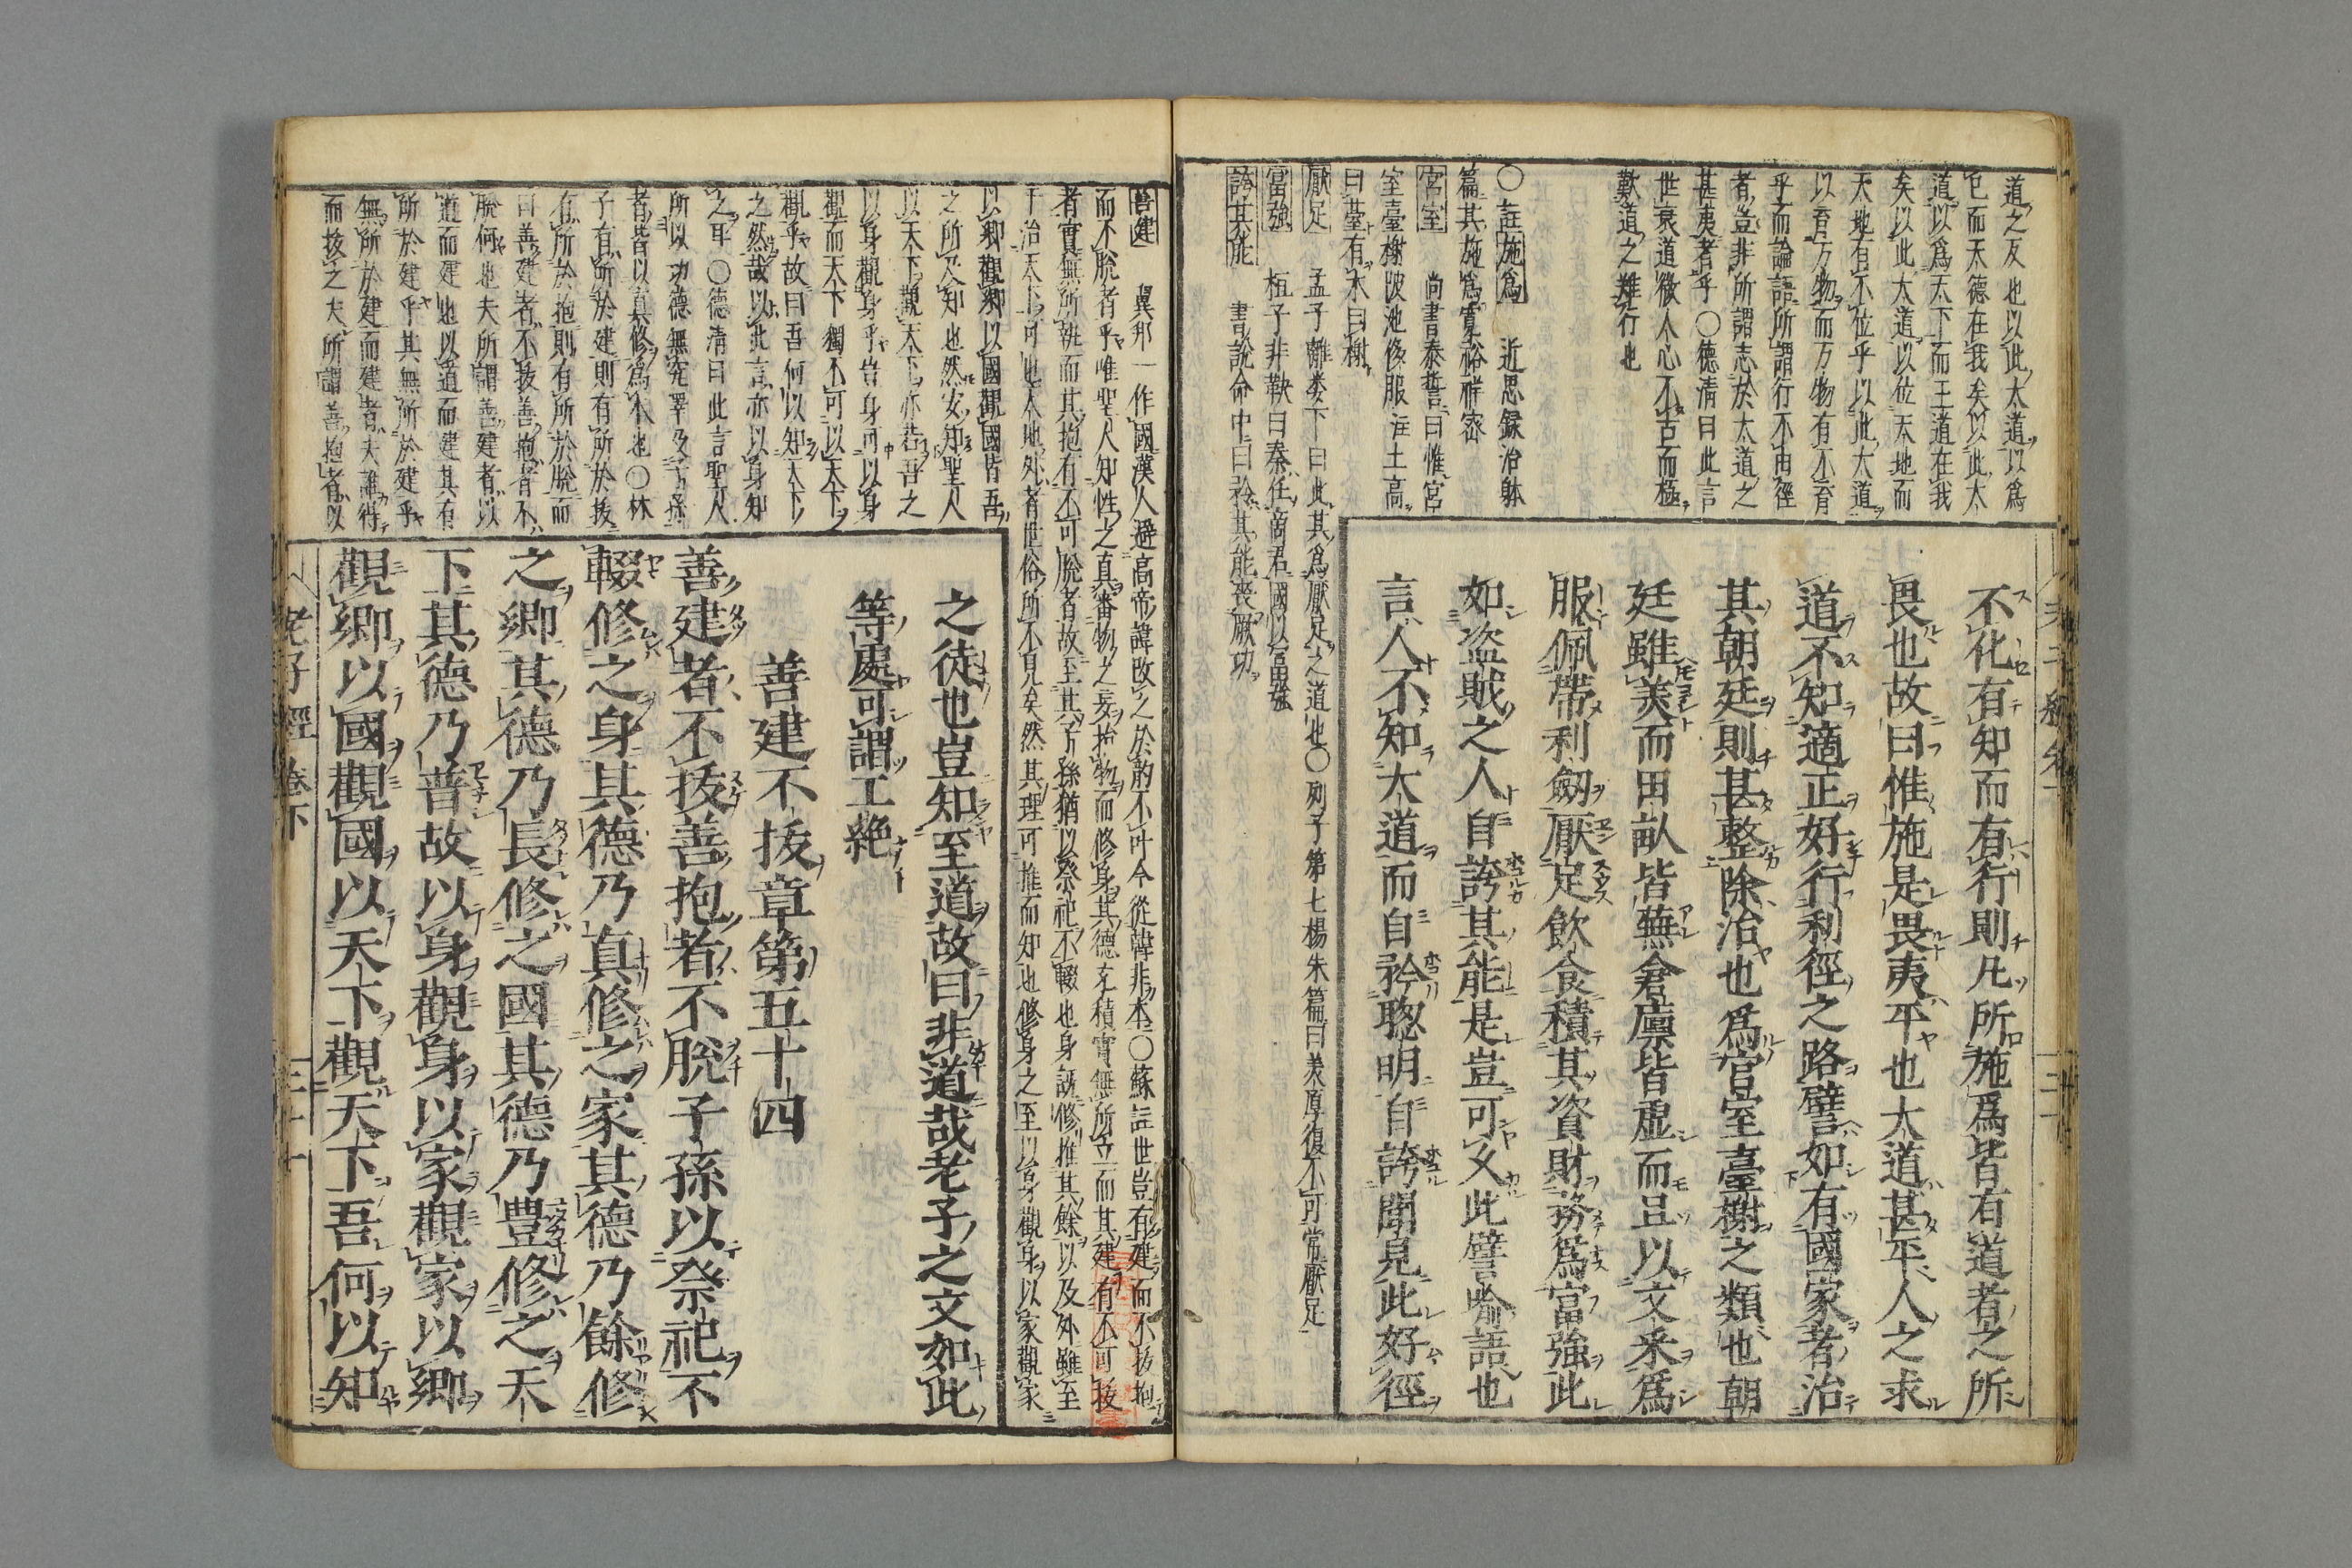 道之反也以此大道以爲
已而天德在我矣以此大
道以爲天下而王道在我
矣以此大道以位天地而
天地有不位乎以此大道
以育万物而万物有不育
乎而論語所謂行不由徑
者豈非所謂志於大道之
甚夷者乎○德清曰此言
世衰道微人心不古而極
歎道之難行也
○註施爲 近思録治躰
篇其施爲寬裕詳密
宮室 尚書泰誓曰惟宮
室臺榭陂池侈服注土高
曰臺有木曰榭
厭足 孟子離婁下曰此其爲厭足之道也○列子第七楊朱篇曰美厚復不可常厭足
富強 桓子非歎曰秦任商君國以富強
誇其能 書說命中曰矜其能喪厥功
不化有知而有行則凡所施爲皆有道者之所
畏也故曰惟施是畏夷平也大道甚平人之求
道不知適正好行利徑之路譬如有國家者治
其朝廷則甚整除治也爲宮室臺榭之類也朝
廷雖美而田畝皆蕪倉廩皆虚而且以文釆爲
服佩帶利劔厭足飲食積其資財務爲富強此
如盗賊之人自誇其能是豈可又此譬喻語也
言人不知大道而自矜聡明自誇聞見此好徑
老子經 卷下
善建 異邦一作國漢人避高帝諱改之於韵不叶今從韓非本○蘇註世豈有建而不抜抱
而不脫者乎唯聖人知性之真審物之妄捨物而修身其德充積實無所立而其建有不可抜
者實無所執而其抱有不可脫者故至其子孫猶以祭祀不輟也身既修推其餘以及外雖至
于治天下可也天地外者世俗所不見矣然其理可推而知也修身之至以身觀身以家觀家
以鄉觀鄉以國觀國皆吾
之所及知也然安知聖人
以天下觀天下亦若吾之
以身觀身乎豈身可以身
觀而天下獨不可以天下
觀乎故曰吾何以知天下
之然哉以此言亦以身知
之耳○德清曰此言聖人
所以功德無窮澤及子孫
者皆以真修爲本也○林
子有所於建則有所於抜
有所於抱則有所於脫而
曰善建者不抜善抱者不
脫何也夫所謂善建者以
道而建也以道而建其有
所於建乎其無所於建乎
無所於建而建者夫誰得
而抜之夫所謂善抱者以
之徒也豈知至道故曰非道哉老子之文如此
等處可謂工絶
善建不抜章第五十四
善建者不抜善抱者不脫子孫以祭祀不
輟修之身其德乃真修之家其德乃餘修
之鄉其德乃長修之國其德乃豊修之天
下其德乃普故以身觀身以家觀家以鄉
觀鄉以國觀國以天下觀天下吾何以知
老子經 卷下